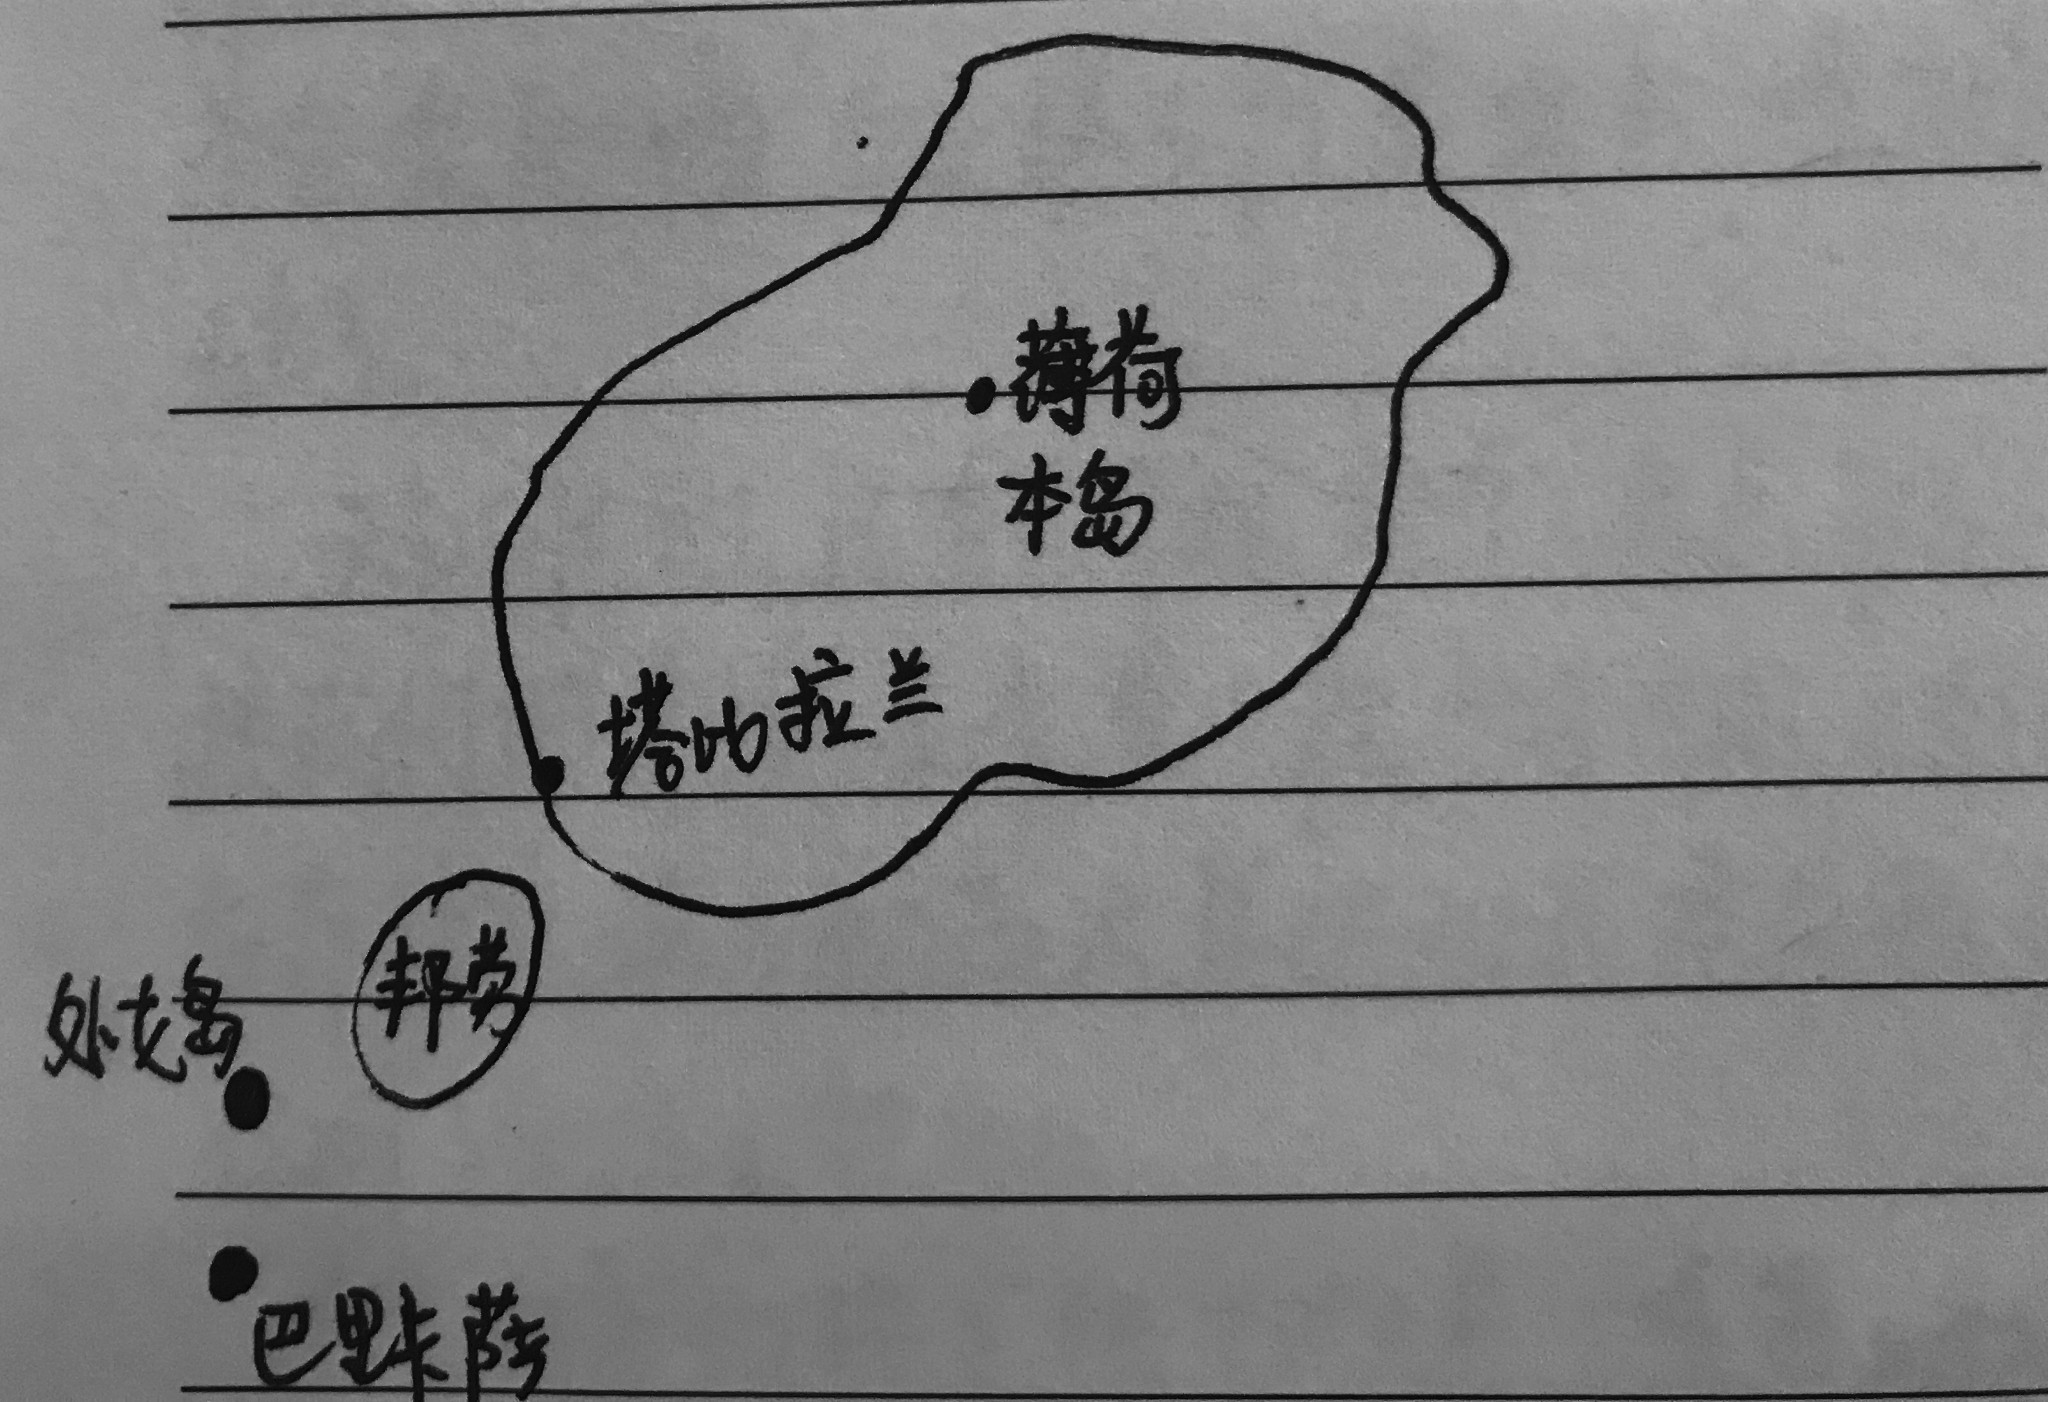 薄荷
本岛
塔比拉兰
邦劳
处龙岛
巴里卡萨